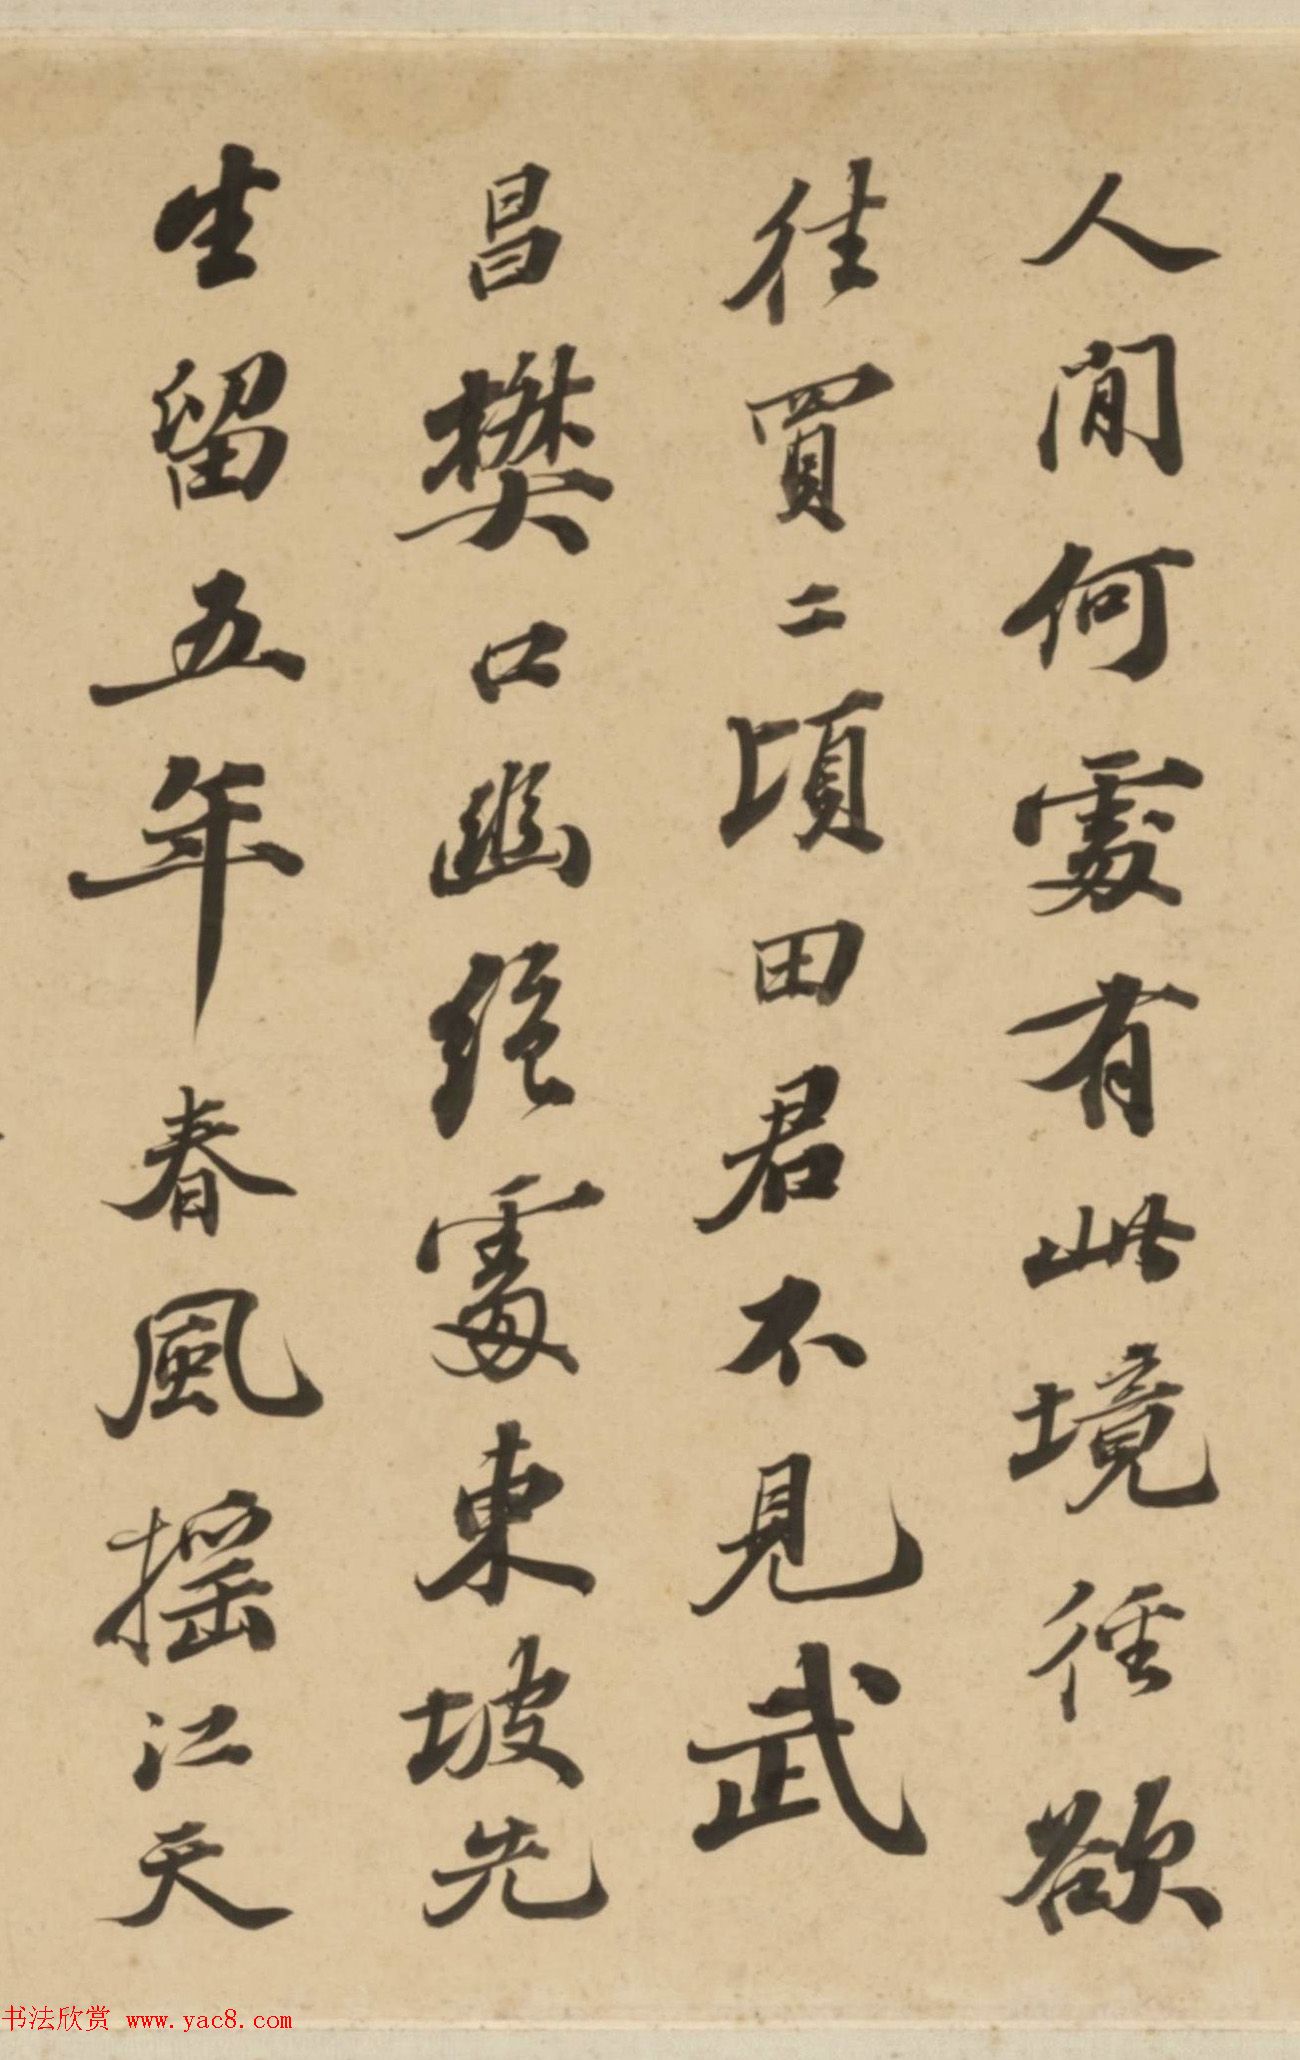 人間何處有此境徑欲
往買二頃田君不見武
昌樊口幽絕處東坡先
生留五年春風搖江天
书法欣赏 www.yac8.com